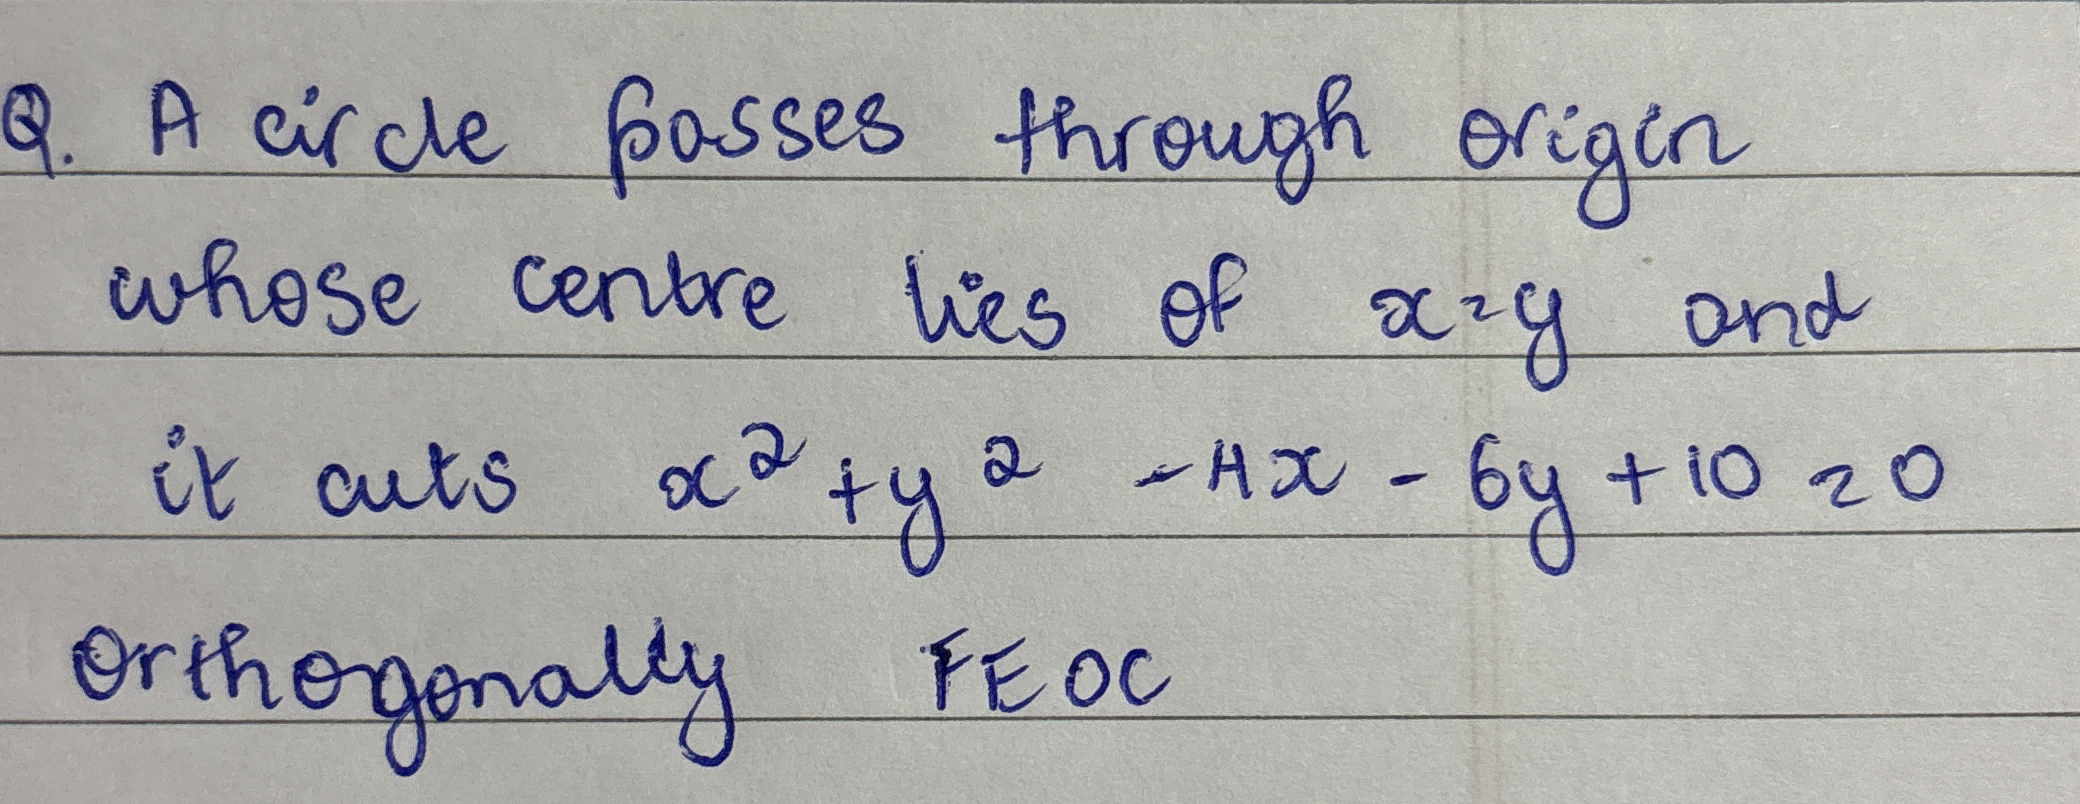 Q. A circle passes through origin
whose centre lies of x=y and
it cuts x² + y² - 4x - 6y + 10 = 0
orthogonally FEOC